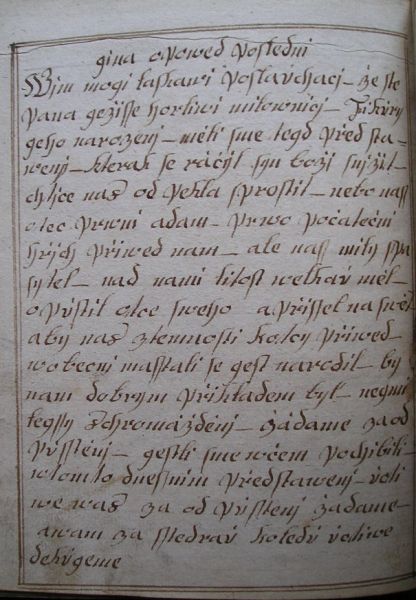 gina opowed posledni
Wjm mogi laskawi poslauchaci – že ste
pana gežisse horliwi milownicj –
geho narozenj – měli sme tegd před sta–
wenj – kterak se ráčil syn boži snjžit
chtice nas od pekla sprostit – nebo nass
otec prwni adam – prwo počateční
hřjch přiwed nam – ale nass mily spa
sytel – nad nami litost welkau měl –
opustil otce sweho a přissel na swět
aby nas z temnosti přiwed –
wobecni masstali se gest narodil – by
nam dobrym přikladem byl –
tegssy Zchromáždění – žádame za od
pusstěnj – gestli sme wčem pochibili –
wtomto dnessnim představenj –
we was za od pusstenj žadame –
awam za stedrau koledu
dekugeme